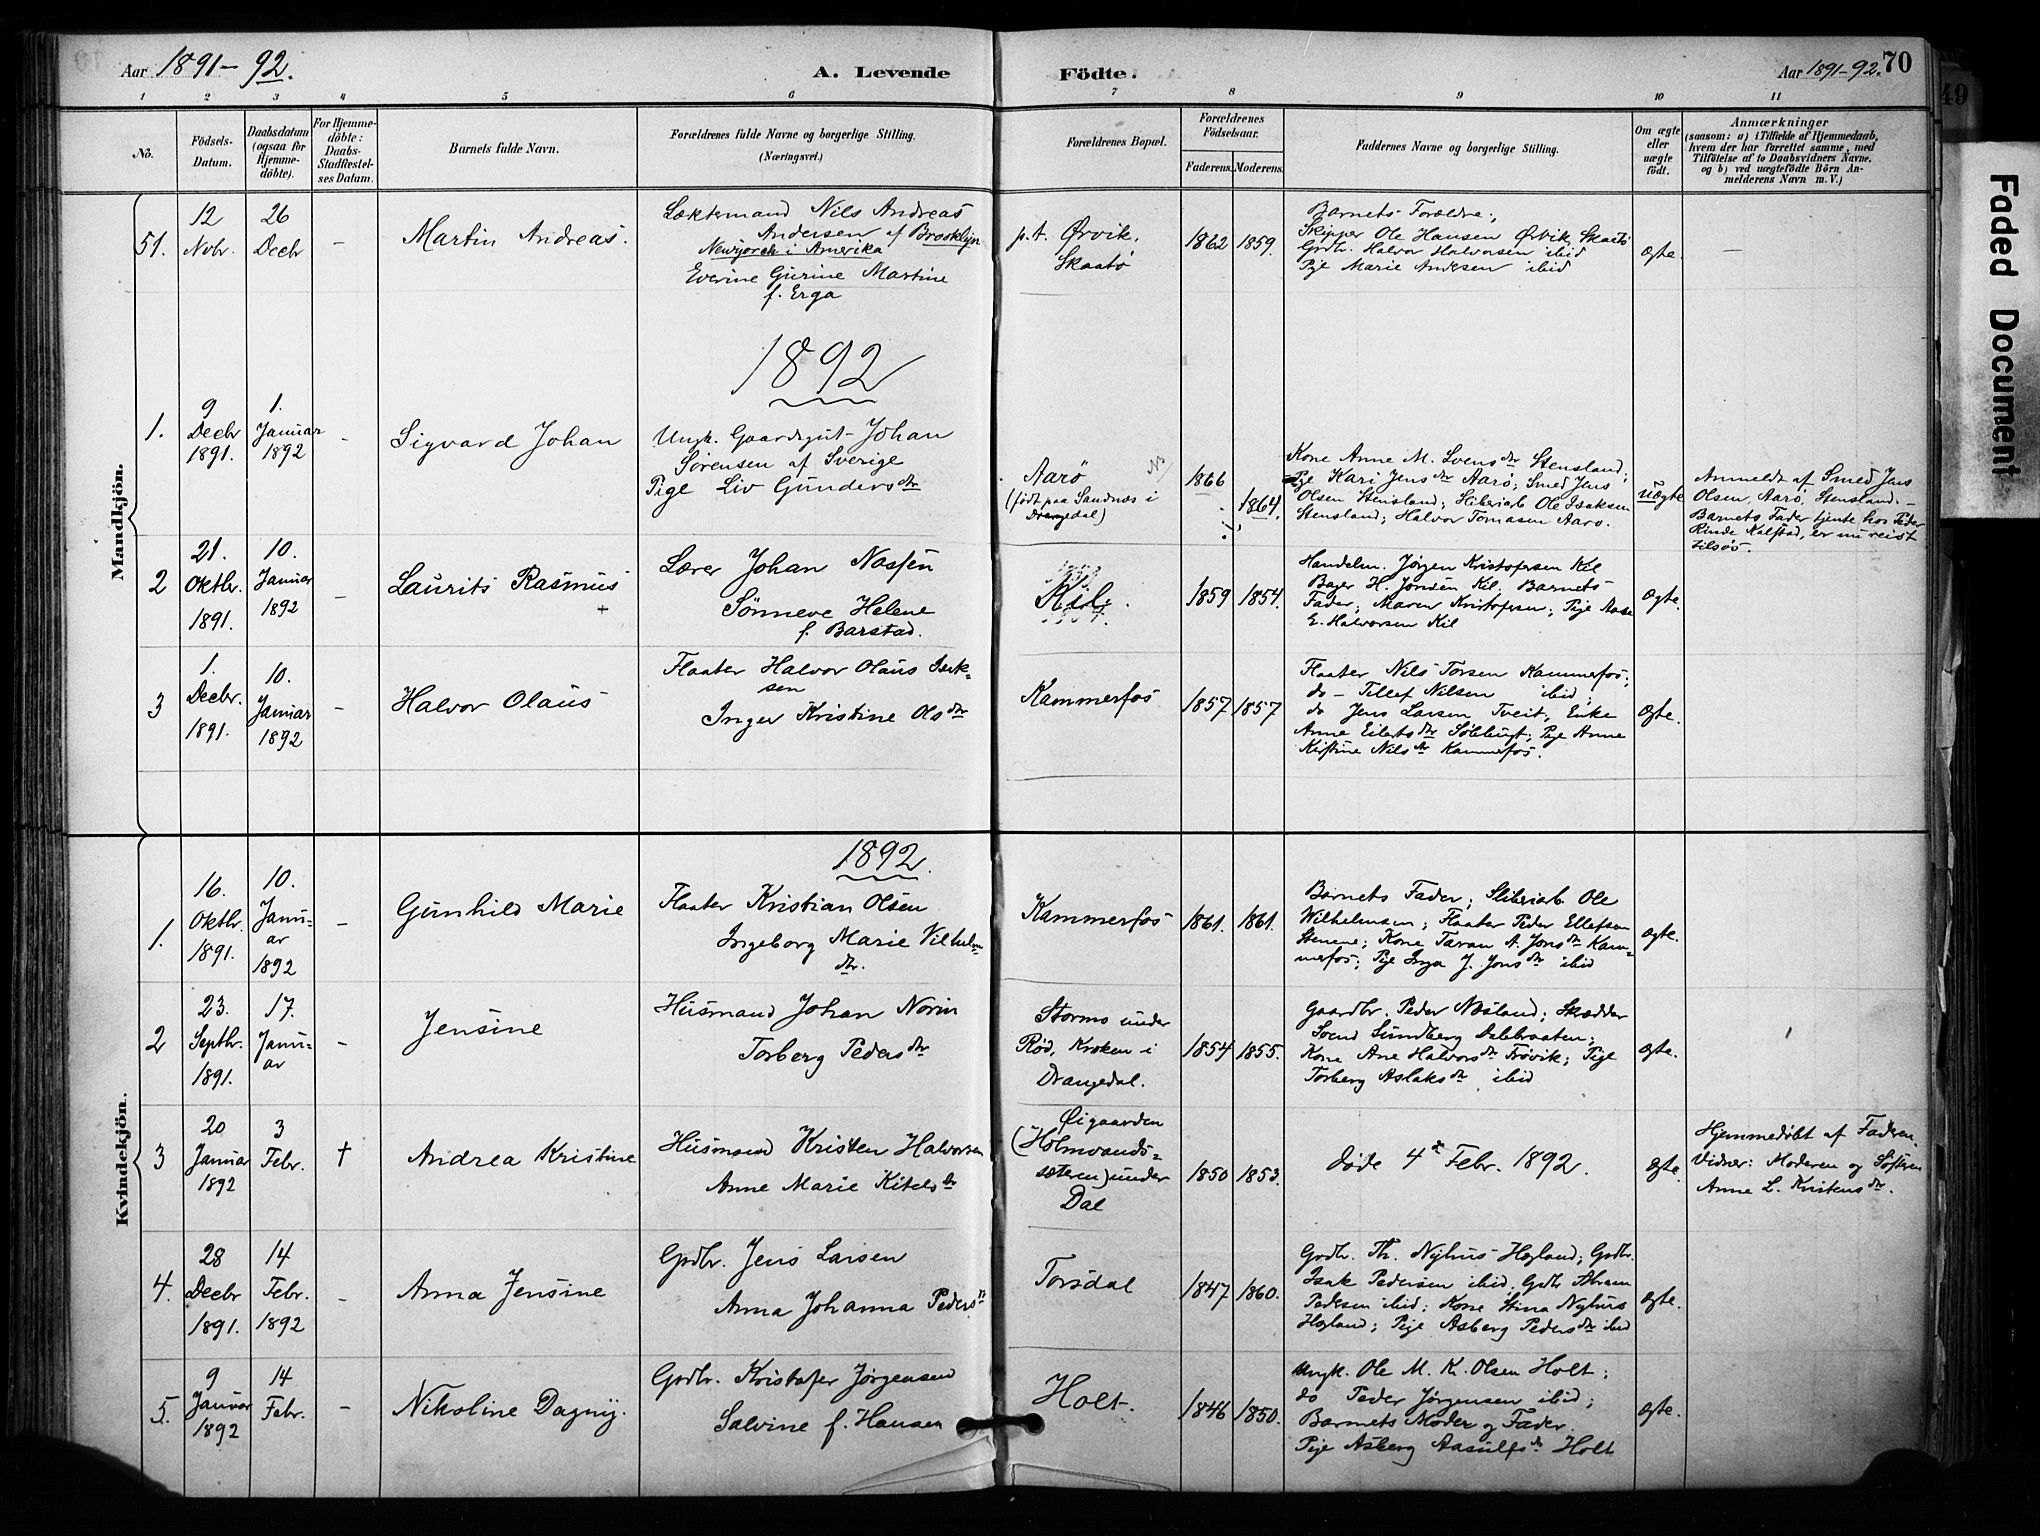 Aar 1891-92.
A. Levende
Födte.
Aar 1891-92.
70
49
Faded Document
1 2 3 4 5 6 7 8 9 10 11
No.
Födsels-
Datum.
Daabsdatum
(ogsaa for
Hjemme-
döbte).
For Hjemme-
döbte:
Daabs-
Stadfæstel-
ses Datum.
Barnets fulde Navn.
Forældrenes fulde Navne og borgerlige Stilling.
(Næringsvei.)
Forældrenes Bopæl.
Forældrenes
Födselsaar.
Faderens.
Moderens.
Faddernes Navne og borgerlige Stilling.
Om ægte
eller
uægte
födt.
Anmærkninger
(saasom: a) i Tilfælde af Hjemmedaab,
hvem der har forrettet samme, med
Tilföielse af to Daabsvidners Navne,
og b) ved uægtefödte Börn An-
melderens Navn m. V.)
Mandkjön.
51.
12
Novbr.
26
Decbr
-
Martin Andreas.
Læktemand Nils Andreas
Andersen af Brooklyn
Newyorck i Amerika
Everine Gurine Martine
f. Erga
p.t. Ørvik,
Skaatø
1862
1859.
Barnets Forældre;
Skipper Ole Hansen Ørvik, Skaatø
Grdbr. Halvor Halvorsen ibid
Pige Marie Andersen ibid
Ægte.
-
1892
1.
9
Decbr
1891.
1.
Januar
1892
-
Sigvard Johan
Ungk. Gaardsgut Johan
Sørensen af Sverige
Pige Liv Gundersdtr
Aarø
(født paa Sandnæs i
Drangedal)
1866
1864.
Kone Anne M. Svensdtr Stensland;
Pige Kari Jensdtr Aarø; Smed Jens
Olsen Stensland; Sliberiarb Ole Isaksen
Stensland; Halvor Tomasen Aarø.
Uægte
Anmeldt af Smed Jens
Olsen, Aarø, Stensland.-
Barnets Fader tjente hos Peder
Rinde Kalstad, er nu reist
tilsøs.
2
21.
Oktbr.
1891.
10.
Januar
1892
-
Laurits Rasmus
+
Lærer Johan Nossen
Sønneve Helene
f. Barstad.
Kil.
1859
1854.
Handelm. Jørgen Kristofersen Kil
Bager H. Jonsen Kil; Barnets
Fader; Maren Kristofersen; Pige Aase
E. Halvorsen Kil
Ægte.
3
1.
Decbr.
1891.
10.
Januar
1892
-
Halvor Olaus
Flaater Halvor Olaus Isak-
sen
Inger Kristine Olsdtr
Kammerfos
1857
1857
Flaater Nils Torsen Kammerfos;
do - Tellef Nilsen ibid;
do Jens Larsen Tveit; Enke
Anne Eilertsdtr Sølebugt; Pige Anne
Kirstine Nilsdtr Kammerfos.
Ægte.
Kvindekjön.
1892.
1.
16.
Oktbr.
1891.
10.
Janu-
ar
1892
-
Gunhild Marie
Flaater Kristian Olsen
Ingeborg Marie Vilhelm
dtr.
Kammerfos
1861.
1861.
Barnets Fader; Sliberiarb Ole
Wilhelmsen; Flaater Peder Ellefsen
Stenene; Kone Taran A. Jonsdtr Kam-
merfos; Pige Inga J. Jonsdtr ibid
Ægte.
2
23.
Septbr.
1891.
17.
Janu-
ar
-
Jensine
Husmand Johan Norin
Torberg Pedersdtr
Stormo under
Rød, Kroken i
Drangedal.
1854
1855.
Gaardbr. Peder Næsland; Skrædder
Svend Sundberg Dalebraaten;
Kone Ane Halvorsdtr Trøvik; Pige
Torberg Aslaksdtr ibid
Ægte.
3
20
Januar
1892
3
Febr.
†
Andrea Kristine
Husmand Kristen Halvorsen
Anne Marie Kitelsdtr
Øigaarden
(Holmvands-
sæteren) under
Dal
1850
1853.
døde 4de Febr. 1892.
Ægte.
Hjemmedøbt af Faderen.
Vidner: Moderen og Søsteren
Anne L. Kristensdtr.
4.
28
Decbr
1891.
14
Febr.
1892
-
Anna Jensine
Grdbr. Jens Larsen
Anna Johanna Pedersdtr
Torsdal
1847
1860.
Grdbr. Th. Nyhus Hegland; Grdbr.
Isak Pedersen ibid, Grdbr Abram
Pedersen ibid; Kone Stina Nyhus
Hegland; Pige Asberg Pedersdtr ibid
Ægte.
5.
9
Januar
1892
14
Febr.
-
Nikoline Dagny.
Grdbr. Kristofer Jørgensen
Salvine f. Hansen
Holt.
1846
1850.
Ungk. Ole M. K. Olsen Holt;
do Peder Jørgensen ibid;
Barnets Moder og Fader
Pige Asberg Aasulfsdtr Holt
Ægte.